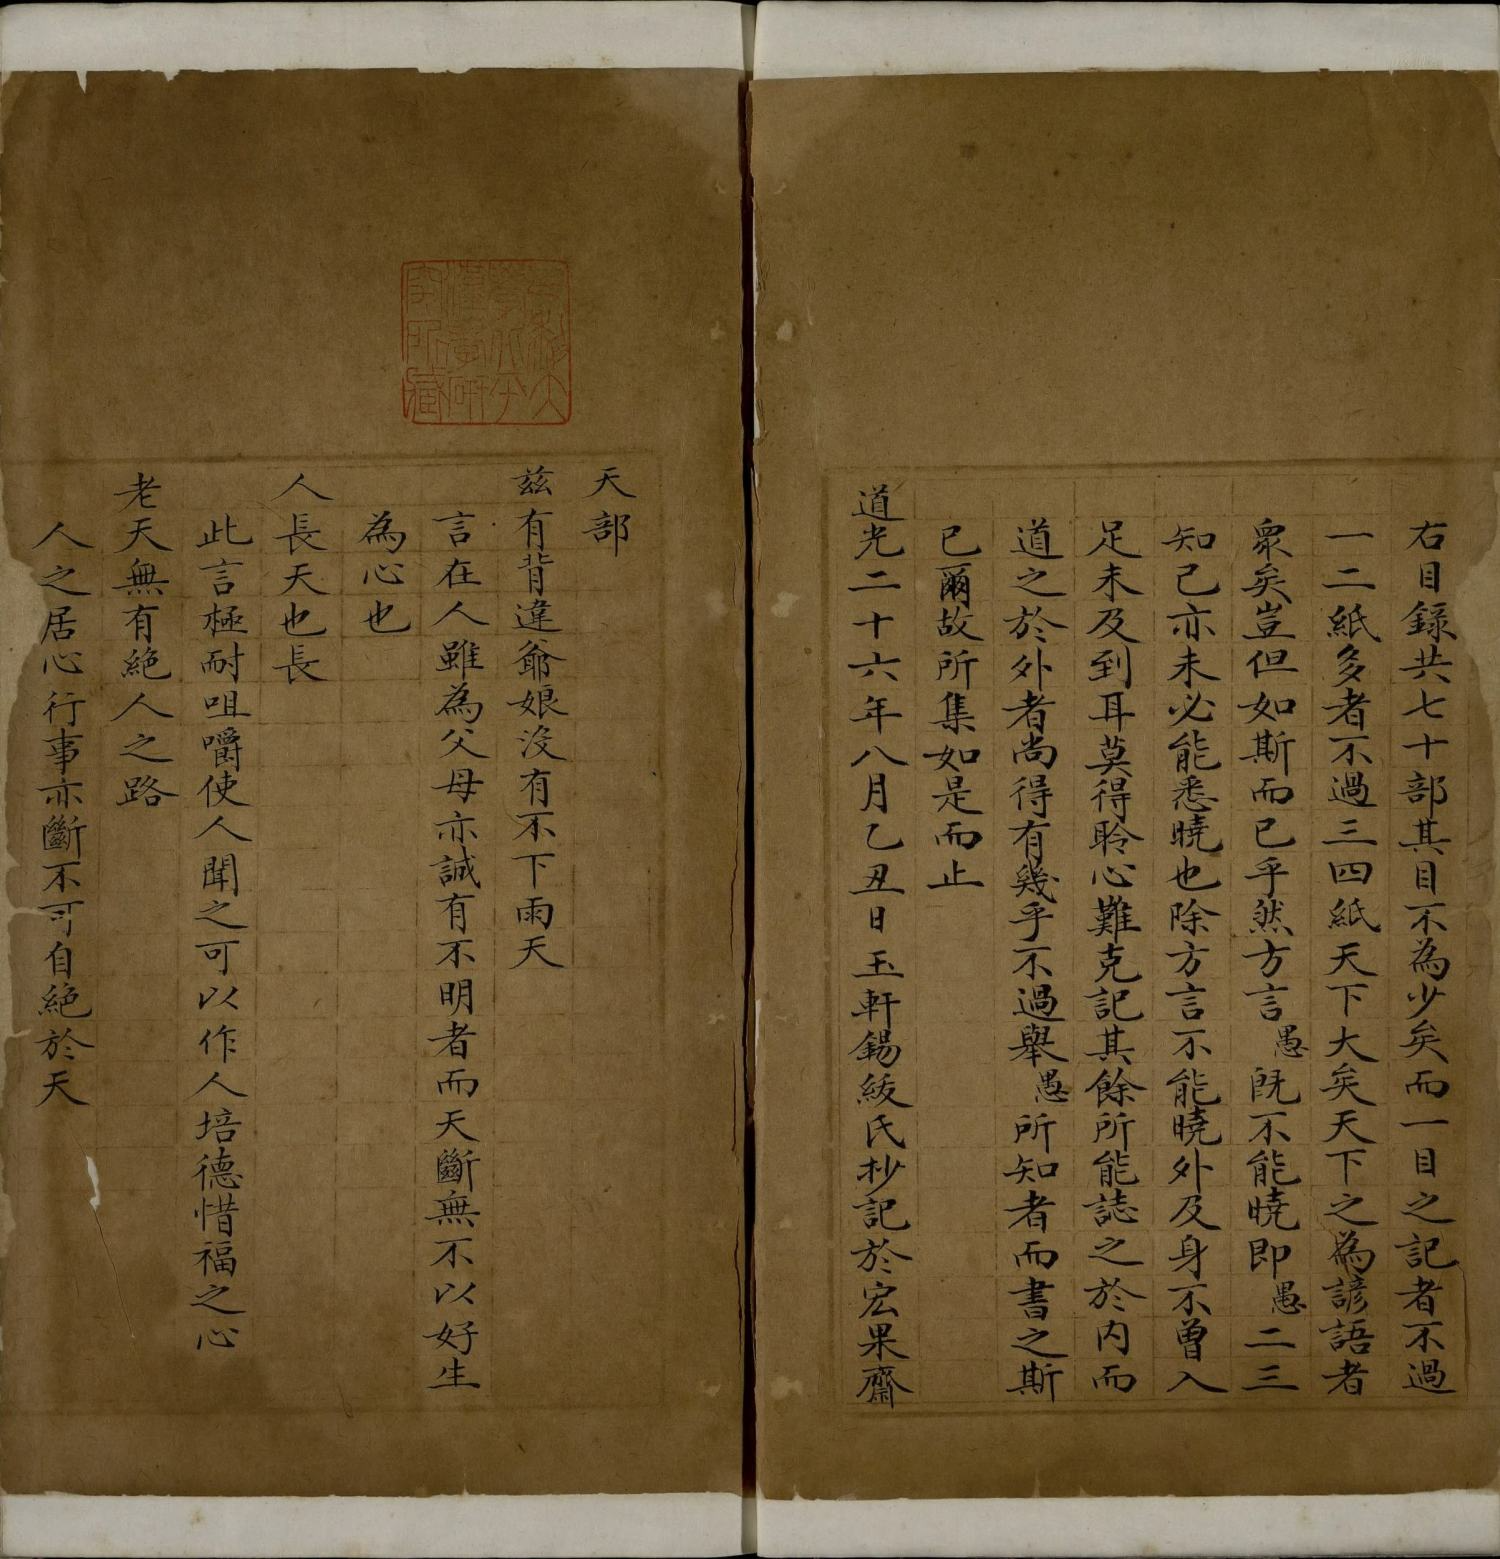 右目錄共七十部其目不為少矣而一目之記者不過
一二紙多者不過三四紙天下大矣天下之為諺語者
眾矣豈但如斯而已乎然方言愚既不能曉即愚二三
知己亦未必能悉曉也除方言不能曉外及身不曾入
足未及到耳莫得聆心難克記其餘所能誌之於內而
道之於外者尚得有幾乎不過舉愚所知者而書之斯
已爾故所集如是而止
道光二十六年八月乙丑日玉軒錫綏氏抄記於宏果齋
天部
茲有背違爺娘沒有不下雨天
言在人雖為父母亦誠有不明者而天斷無不以好生
為心也
人長天也長
此言極耐咀嚼使人聞之可以作人培德惜福之心
老天無有絕人之路
人之居心行事亦斷不可自絕於天
所藏